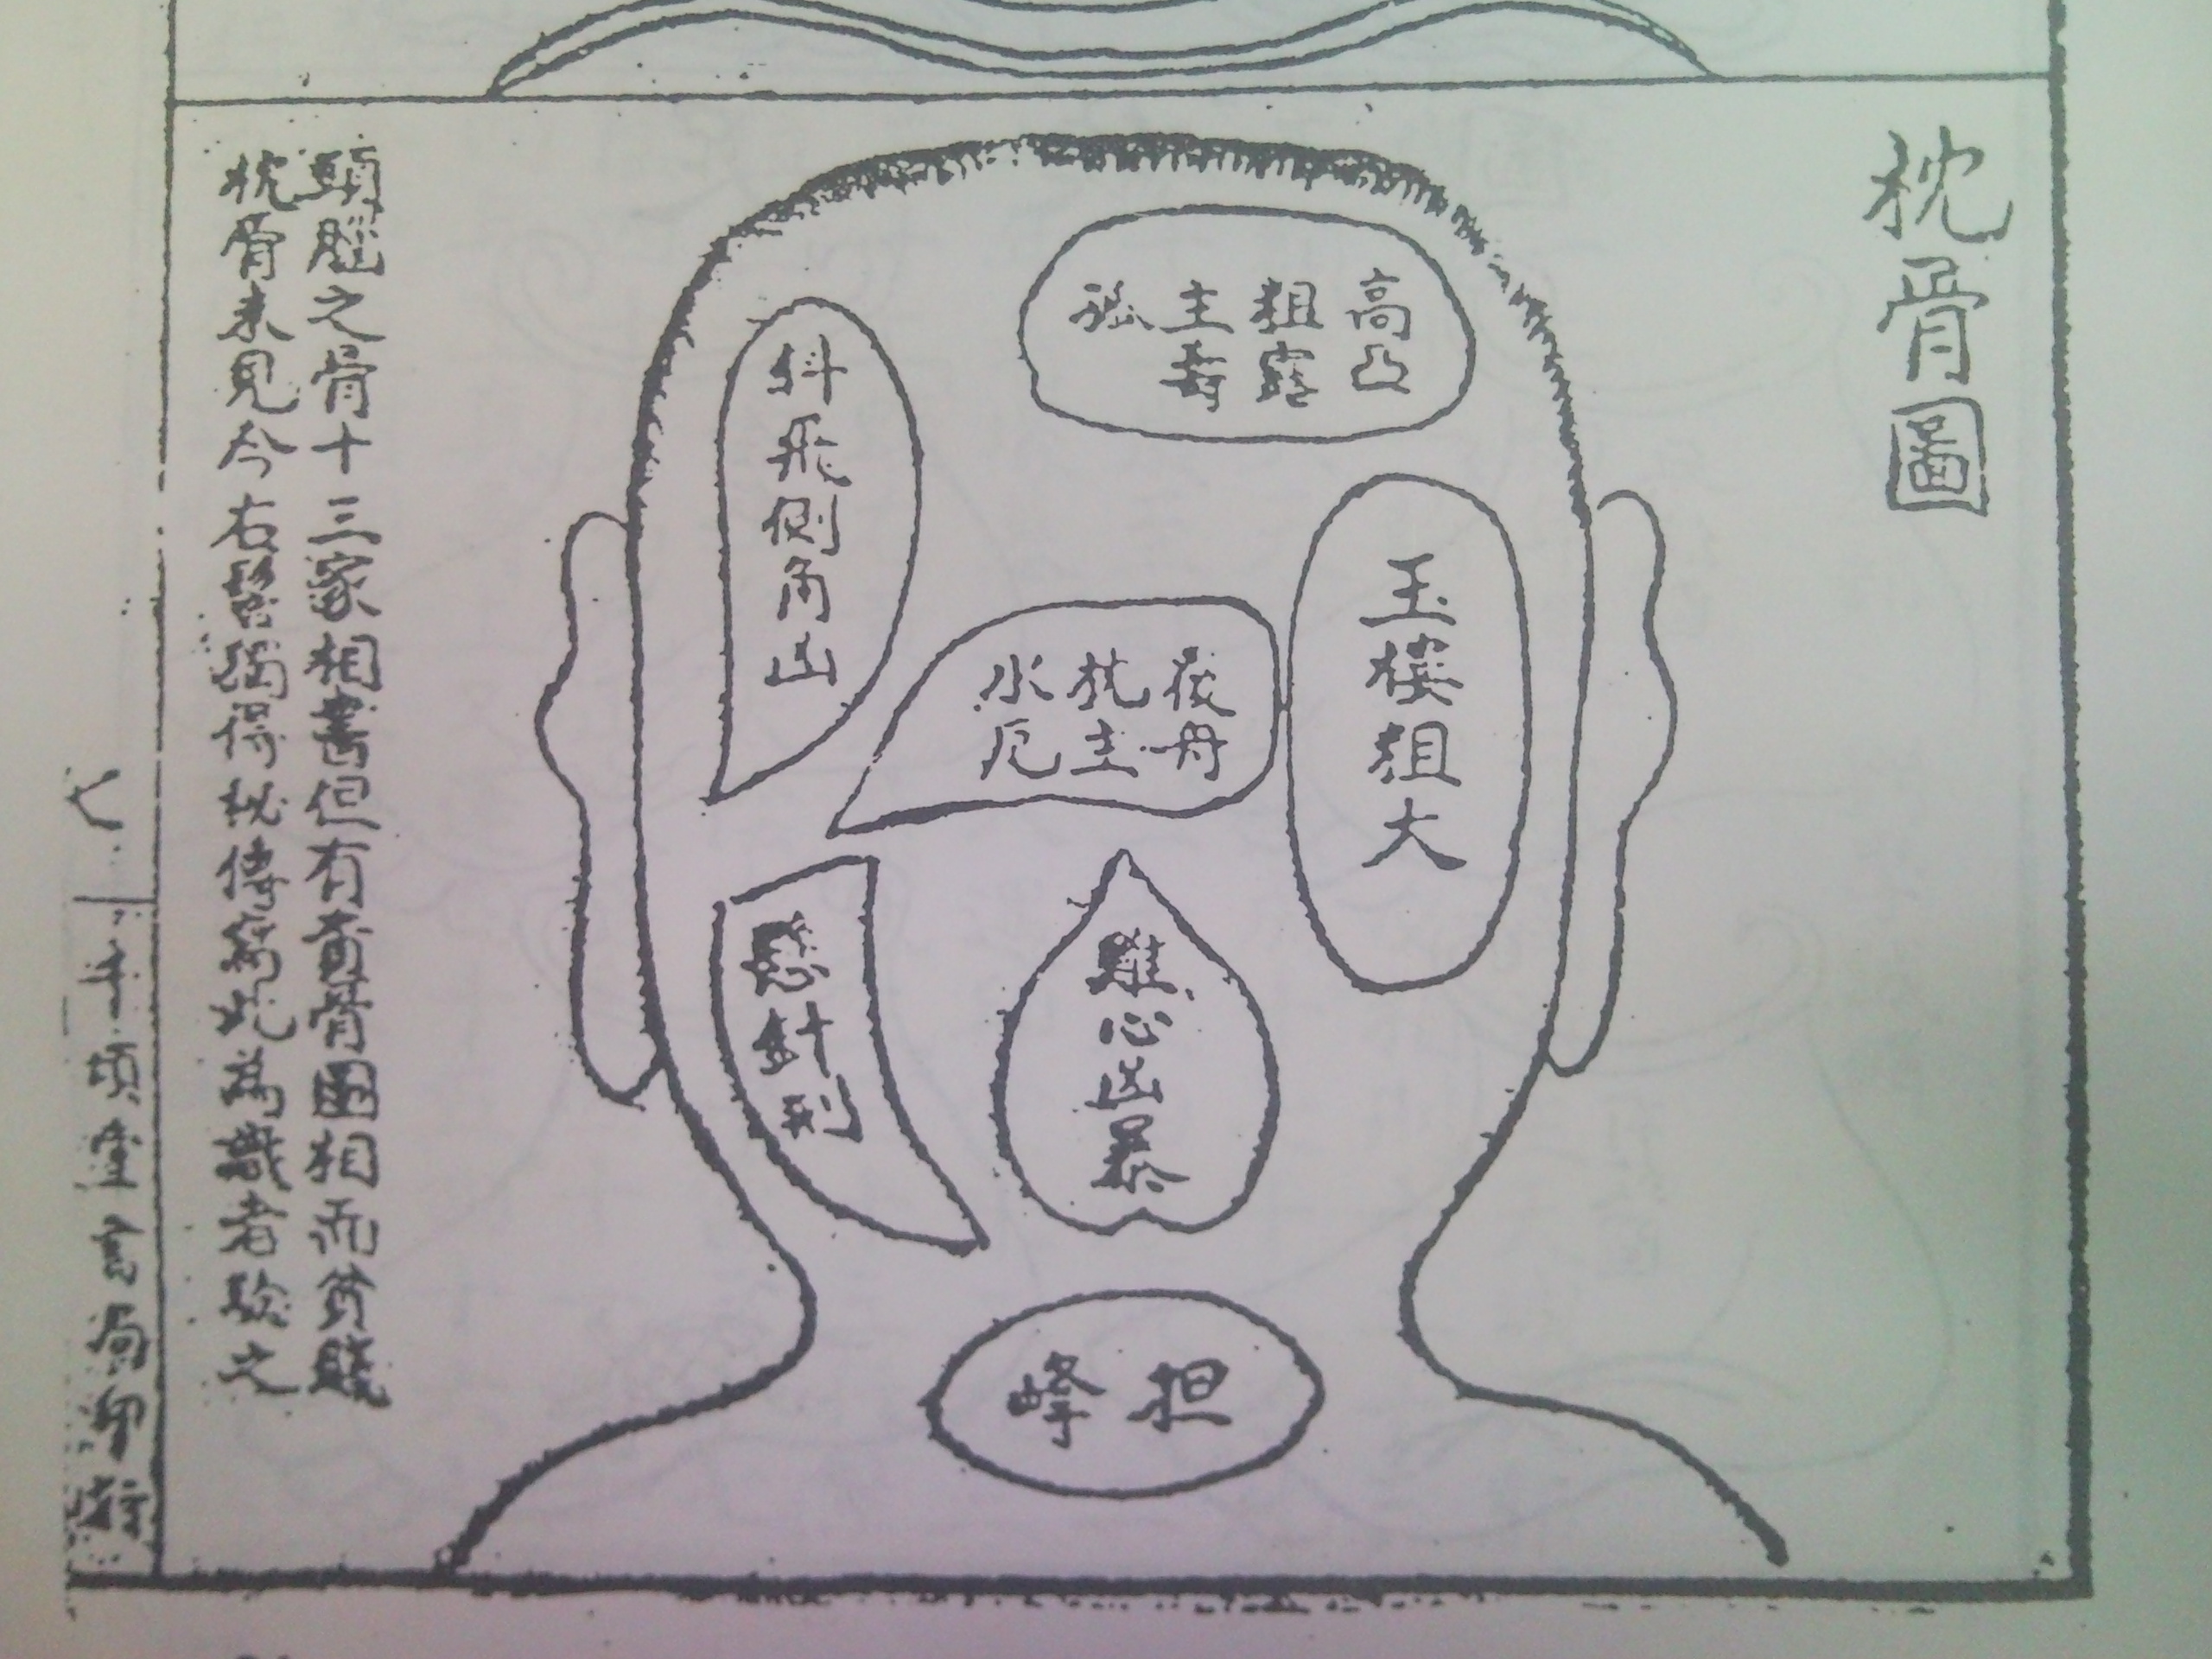 枕骨圖
高亞
粗露
主壽
孤
玉樓粗大
斜飛側角凶
茯舟
枕主
水厄
雞心凶暴
懸針刑
担
峰
頭腦之骨十三家相書但有貴骨圖相而貧賤
枕骨未見今右髻獨得秘傳為識者歌之
千頃堂書局印行